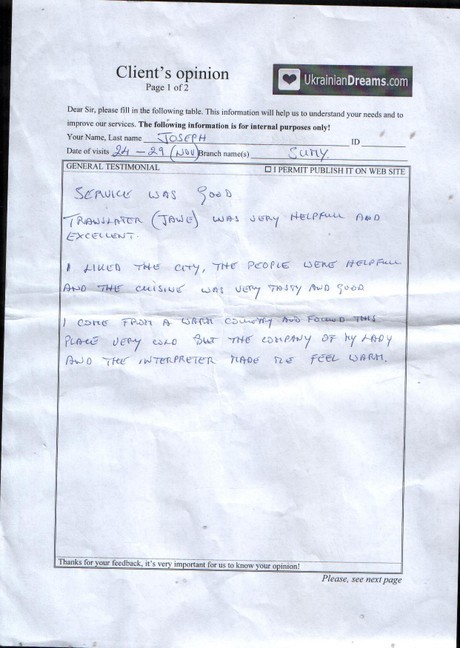 Client's opinion
Page 1 of 2
UkrainianDreams.com
Dear Sir, please fill in the following table. This information will help us to understand your needs and to
improve our services. The following information is for internal purposes only!
Your Name, Last name JOSEPH ID
Date of visits 24 - 29 (NOV) Branch name(s) SUMY
GENERAL TESTIMONIAL ☐ I PERMIT PUBLISH IT ON WEB SITE
SERVICE WAS GOOD
TRANSLATER (JANE) WAS VERY HELPFULL AND
EXCELLENT.
I LIKED THE CITY, THE PEOPLE WERE HELPFULL
AND THE CUISINE WAS VERY TASTY AND GOOD
I COME FROM A WARM COUNTRY AND FOUND THIS
PLACE VERY COLD BUT THE COMPANY OF MY LADY
AND THE INTERPRETER MADE ME FEEL WARM.
Thanks for your feedback, it's very important for us to know your opinion!
Please, see next page